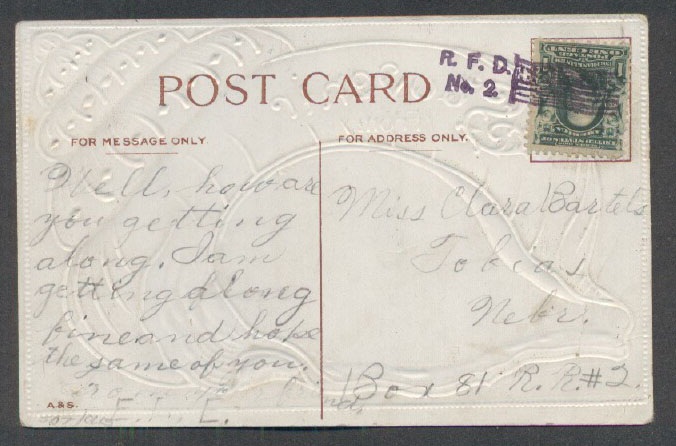 POST CARD
R. F. D.
No. 2
FOR MESSAGE ONLY
FOR ADDRESS ONLY.
Well, how are
you getting
along. I am
getting along
fine and hope
the same of you.
Miss Clara Bartels
Tobias
Nebr.
Box 81 R. R. #2.
A.&S.